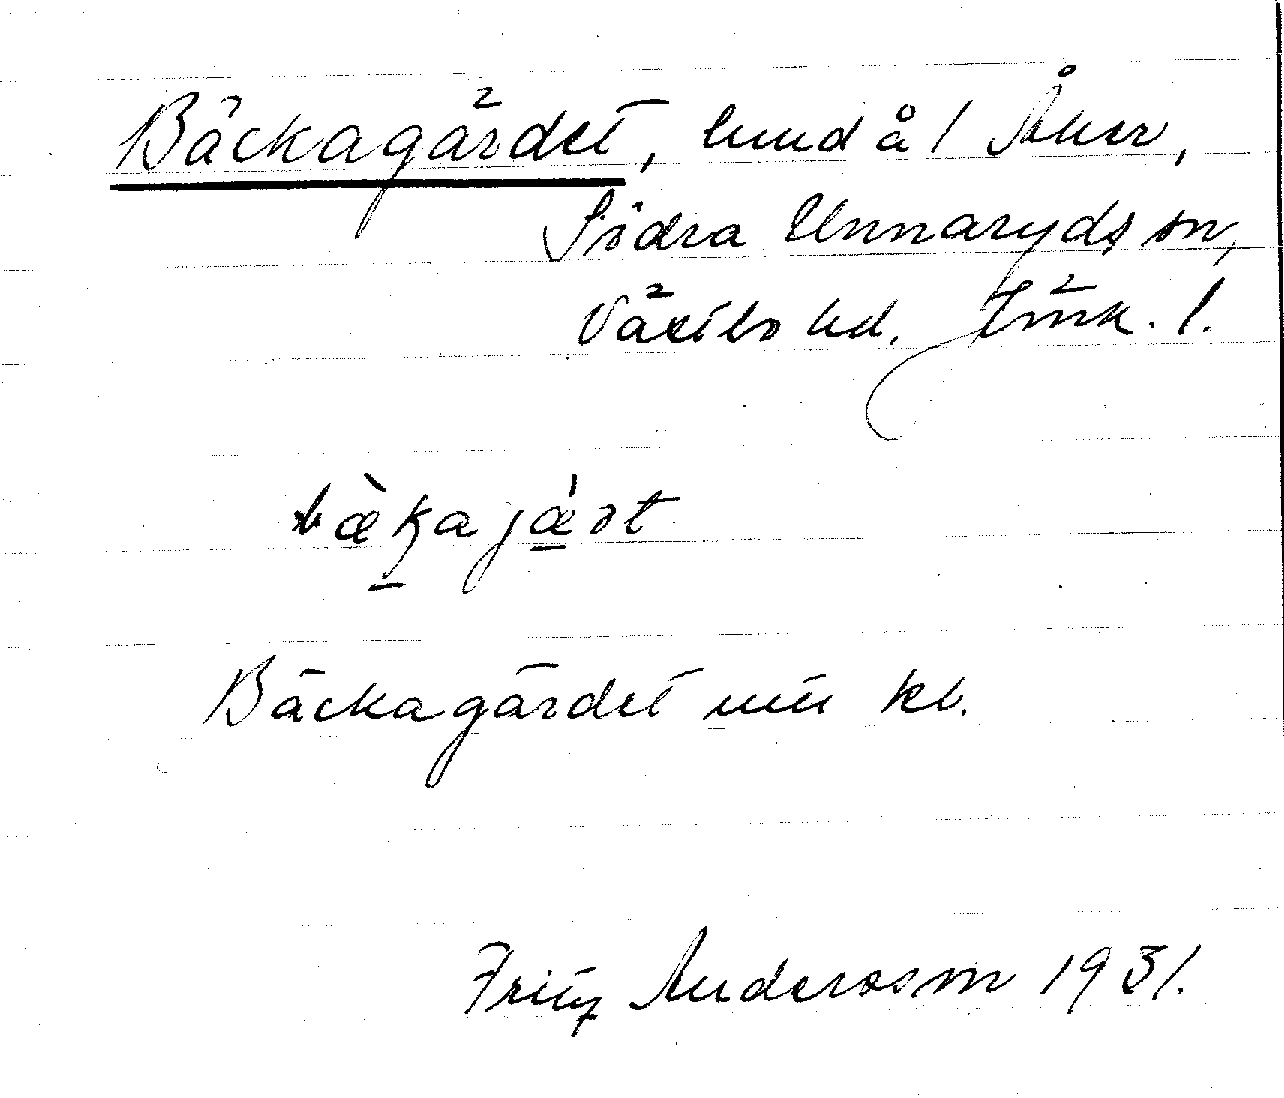 Bäckagärdet, hmd å 1 Åker,
Södra Unnaryds sn,
Västbo hd. Jönk. l.
bæ̀kajæ̀rt
Bäckagärdet uu kb.
Fritz Andersson 1931.